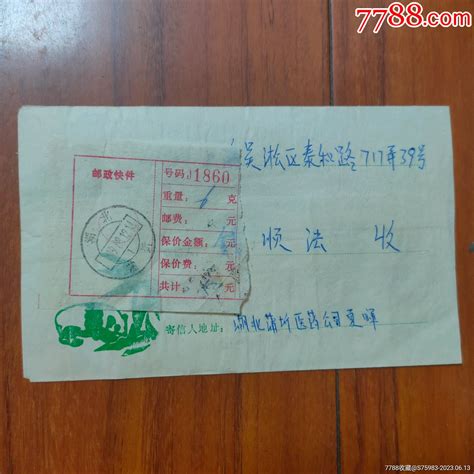 7788.com
吴淞区泰和路717弄39号
邮政快件
号码J1860
重量: 克
邮费: 元
保价金额: 元
保价费: 元
共计: 元
顺法 收
寄信人地址: 湖北蒲圻医药公司夏晖
7788收藏@S75983-2023.06.13